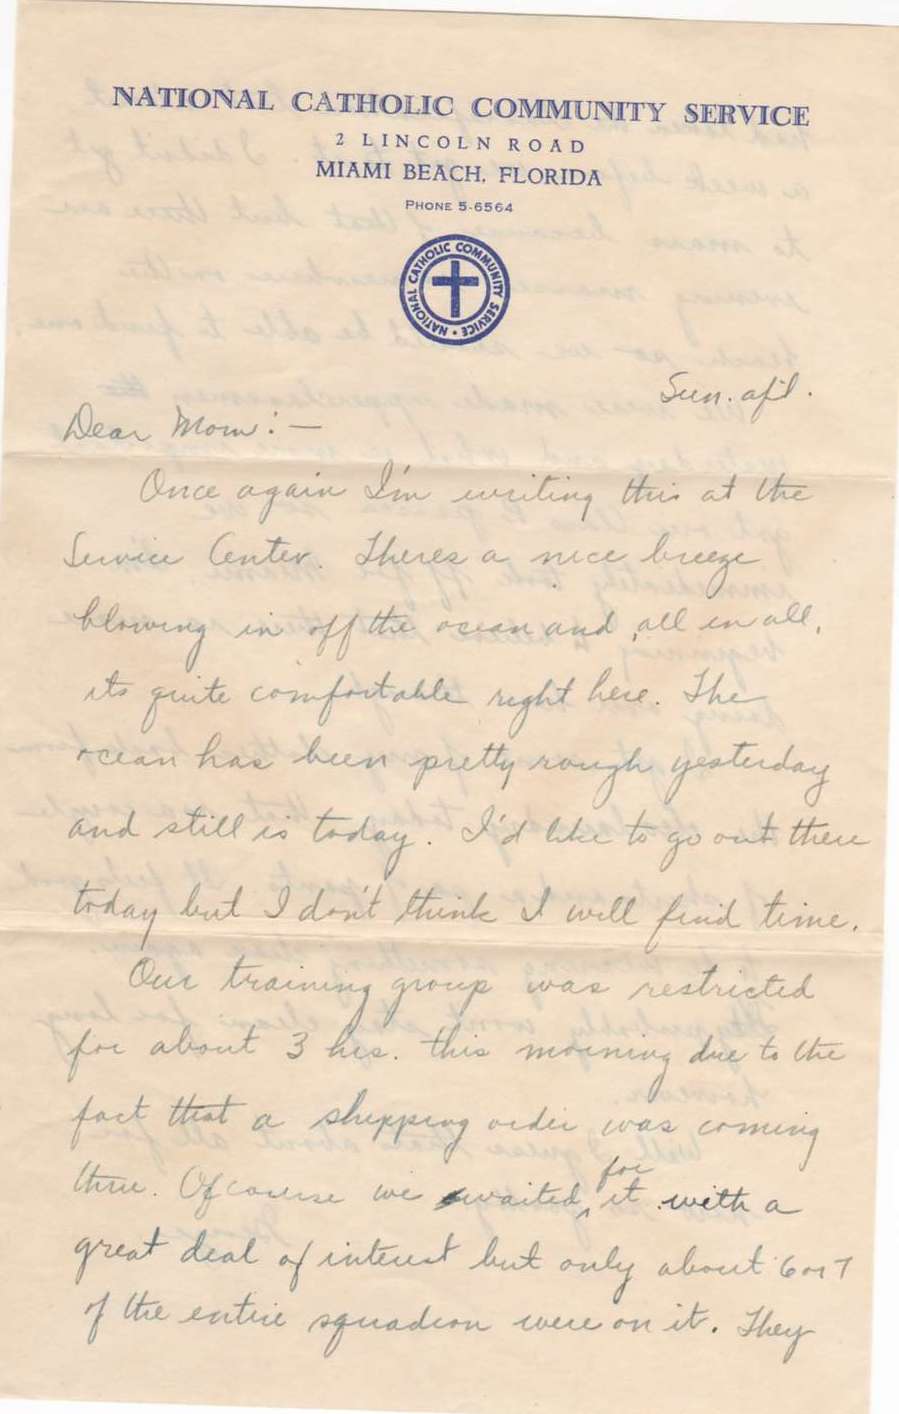 NATIONAL CATHOLIC COMMUNITY SERVICE
2 LINCOLN ROAD
MIAMI BEACH, FLORIDA
PHONE 5-6564
NATIONAL CATHOLIC COMMUNITY SERVICE
Sun. aft.
Dear Mom:—
Once again I'm writing this at the
Service Center. Theres a nice breeze
blowing in off the ocean and, all in all,
its quite comfortable right here. The
ocean has been pretty rough yesterday
and still is today. I'd like to go out there
today but I don't think I will find time.
Our training group was restricted
for about 3 hrs. this morning due to the
fact that a shipping order was coming
thru. Of course we waited for it with a
great deal of interest but only about 6 or 7
of the entire squadron were on it. They